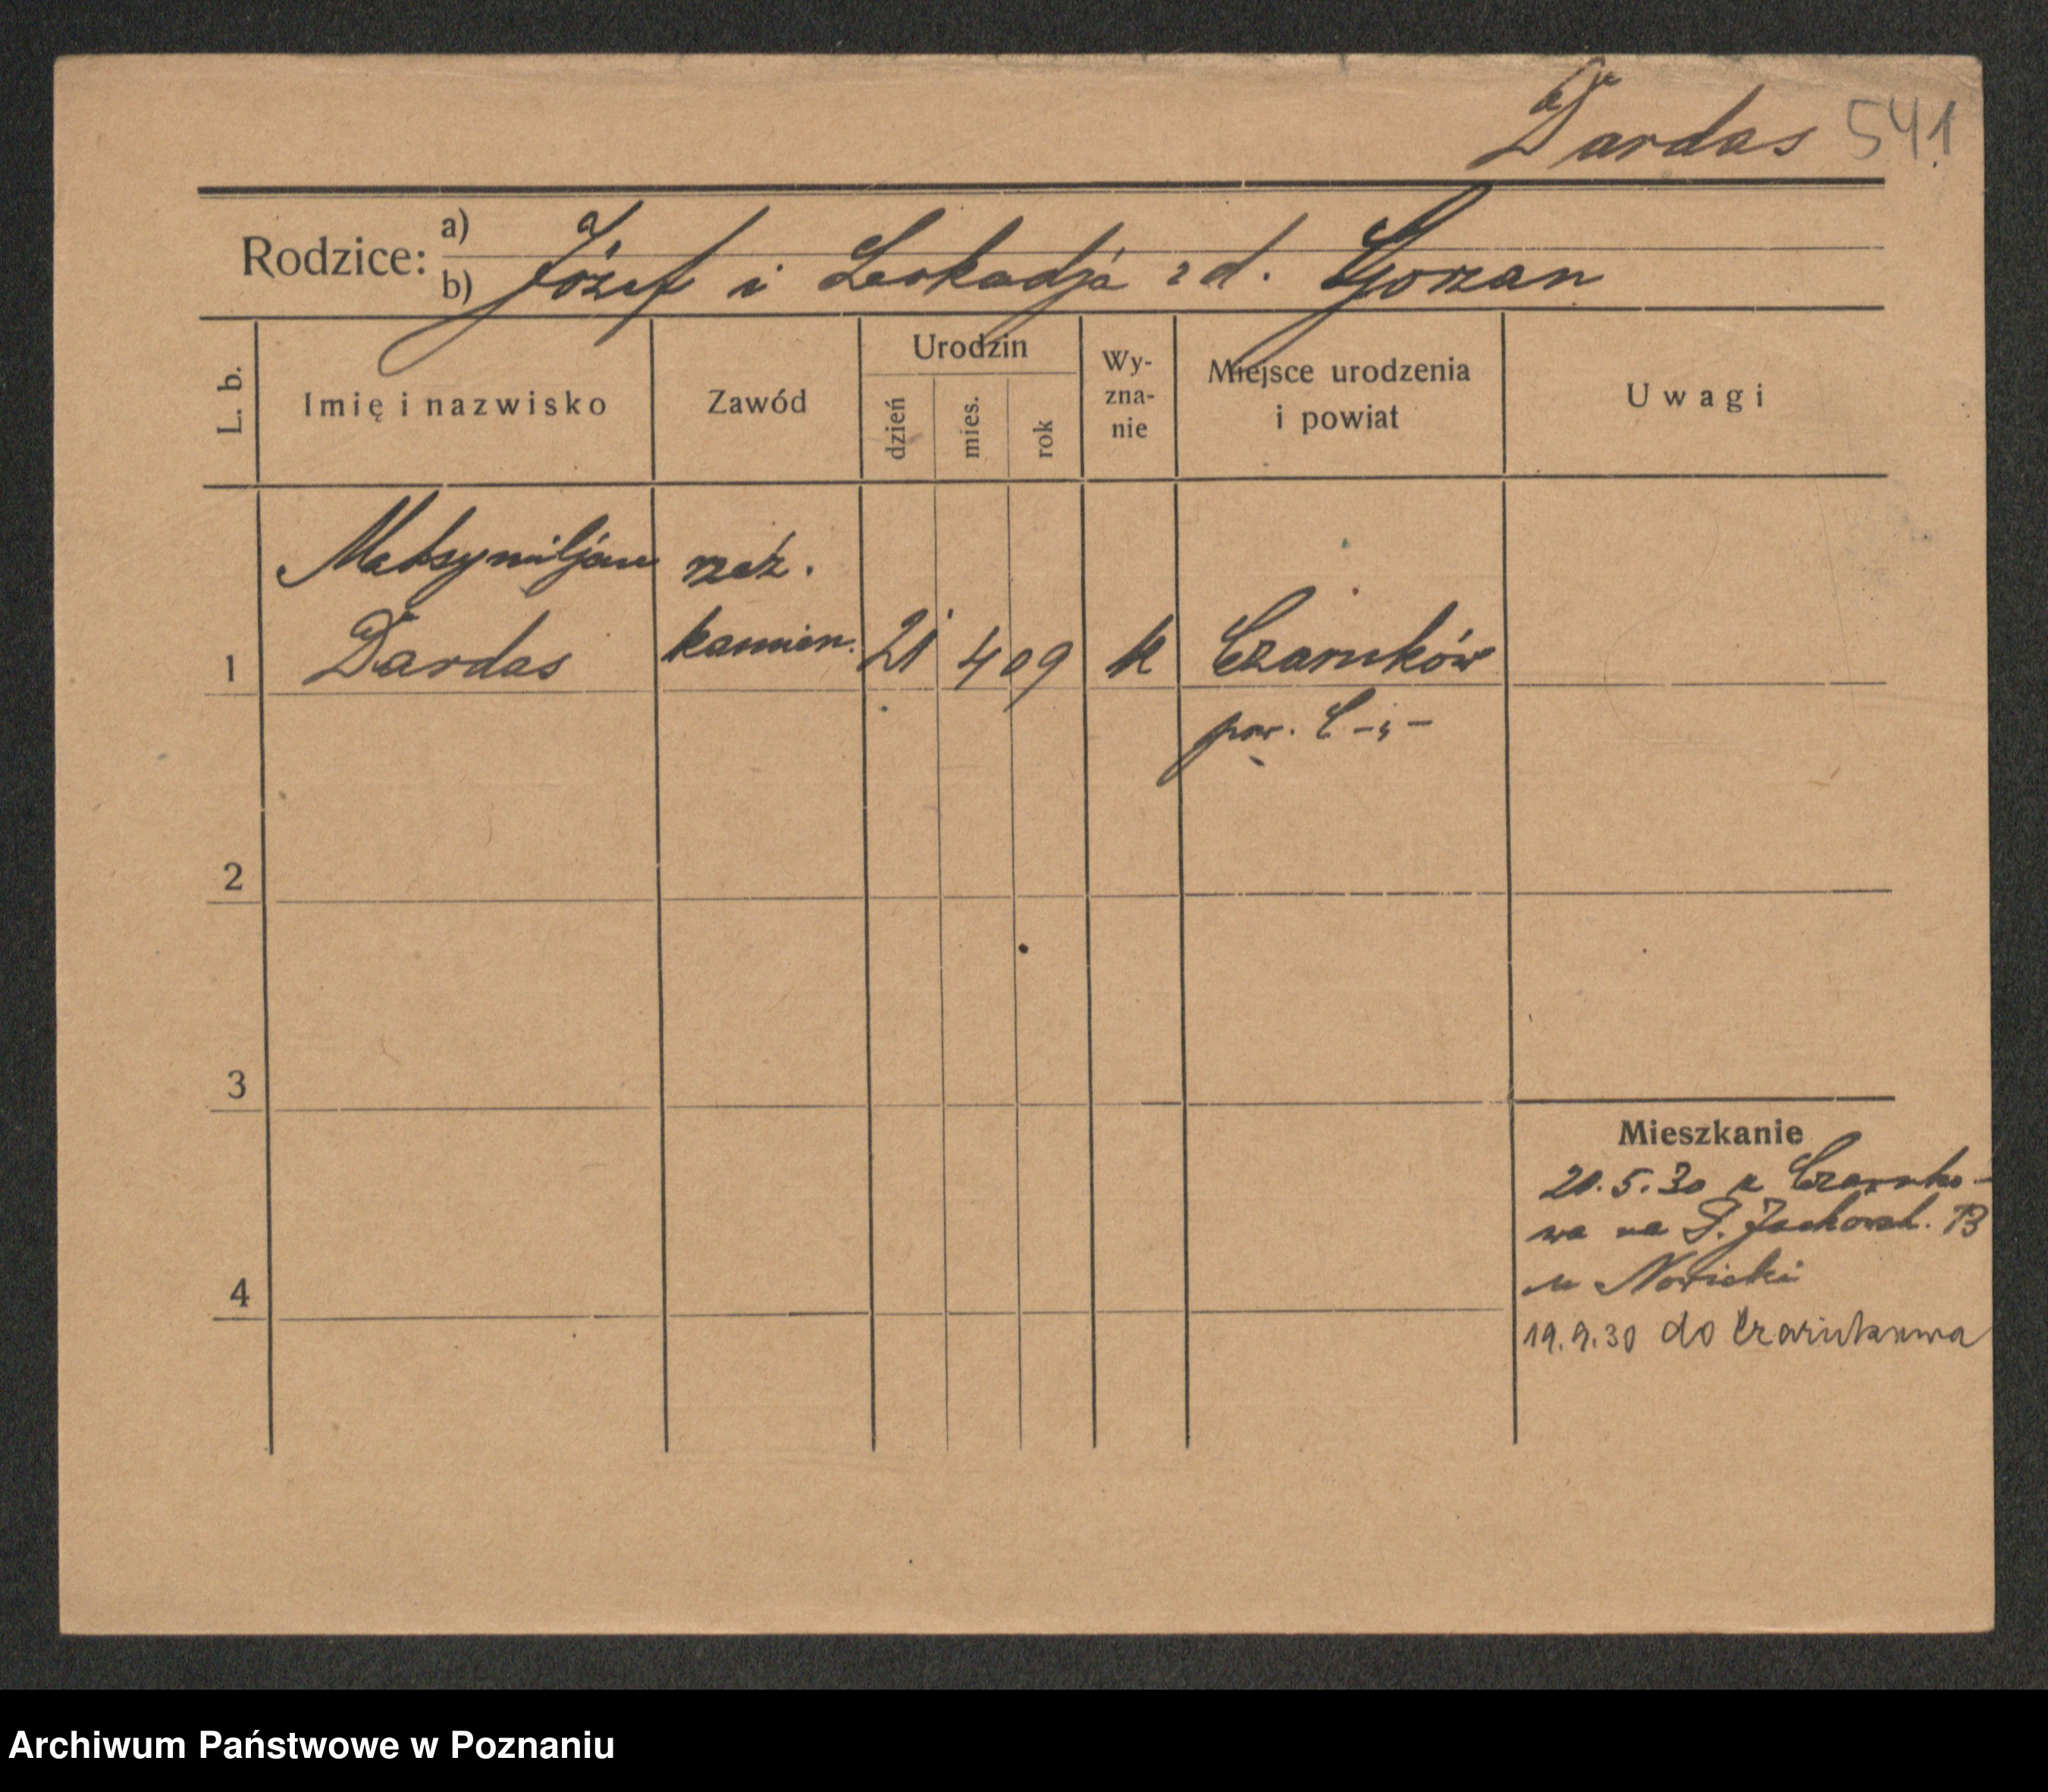 Dardas 541
Rodzice: a)
b) Józef i Leokadja z d. Gorzan
L. b.
Imię i nazwisko
Zawód
Urodzin
dzień
mies.
rok
Wy-
zna-
nie
Miejsce urodzenia
i powiat
Uwagi
Maksymiljan rzeź.
1 Dardas kamien. 21 4 09 k Czarnków
pow. C-„-
2
3
4
Mieszkanie
20.5.30 z Czarnko-
wa na Jackowsk. 13
u Nowicki
19.9.30 do Czarnkowa
Archiwum Państwowe w Poznaniu